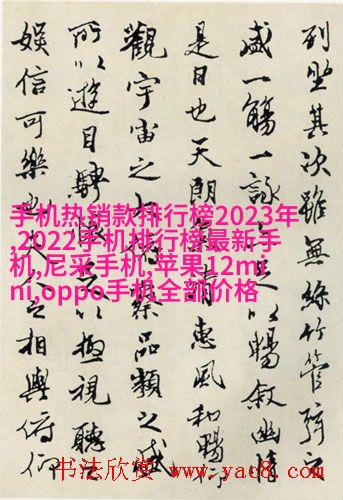 列坐其次雖無絲竹管弦之
盛一觴一詠亦足以暢敘幽情
是日也天朗氣清惠風和暢仰
觀宇宙之大俯察品類之盛
所以遊目騁懷足以極視聽之
娛信可樂也夫人之相與俯仰
手机热销款排行榜2023年
,2022手机排行榜最新手
机,尼采手机,苹果12mi
ni,oppo手机全部价格
书法欣赏 www.yac8.com